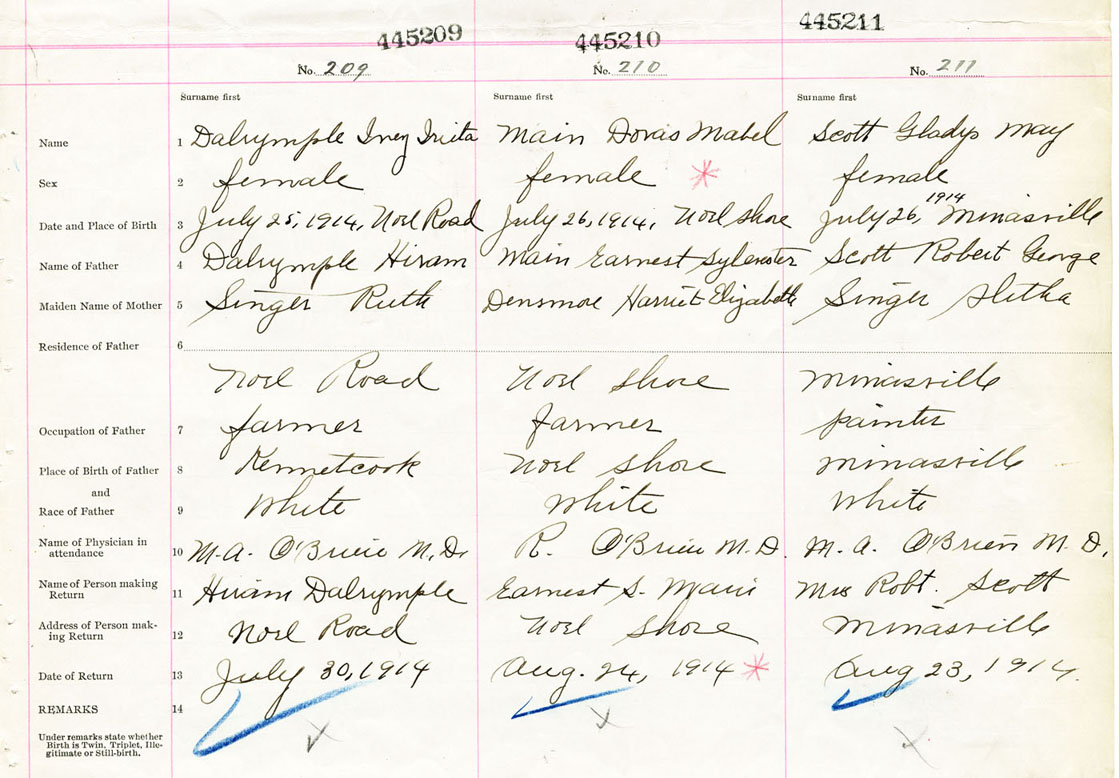 445209 445210 445211
No. 209 No. 210 No. 211
Surname first Surname first Surname first
Name 1 Dalrymple Inez Main Doras Mabel Scott Gladys May
Sex 2 female female female
Date and Place of Birth 3 July 25, 1914, Noel Road July 26, 1914, Noel Shore July 26, 1914 Minasville
Name of Father 4 Dalrymple Hiram Main Earnest Sylvester Scott Robert George
Maiden Name of Mother 5 Singer Ruth Densmore Harriet Elizabeth Singer
Residence of Father 6
Noel Road Noel Shore Minasville
Occupation of Father 7 farmer farmer painter
Place of Birth of Father 8 Kennetcook Noel Shore Minasville
and
Race of Father 9 White White White
Name of Physician in
attendance 10 M. A. O'Brien M. D. R. O'Brien M. D. M. A. O'Brien M. D.
Name of Person making
Return 11 Hiram Dalrymple Earnest S. Main Mrs Robt. Scott
Address of Person mak-
ing Return 12 Noel Road Noel Shore Minasville
Date of Return 13 July 30, 1914 Aug. 24, 1914 Aug 23, 1914.
REMARKS 14
Under remarks state whether
Birth is Twin, Triplet, Ille-
gitimate or Still-birth.